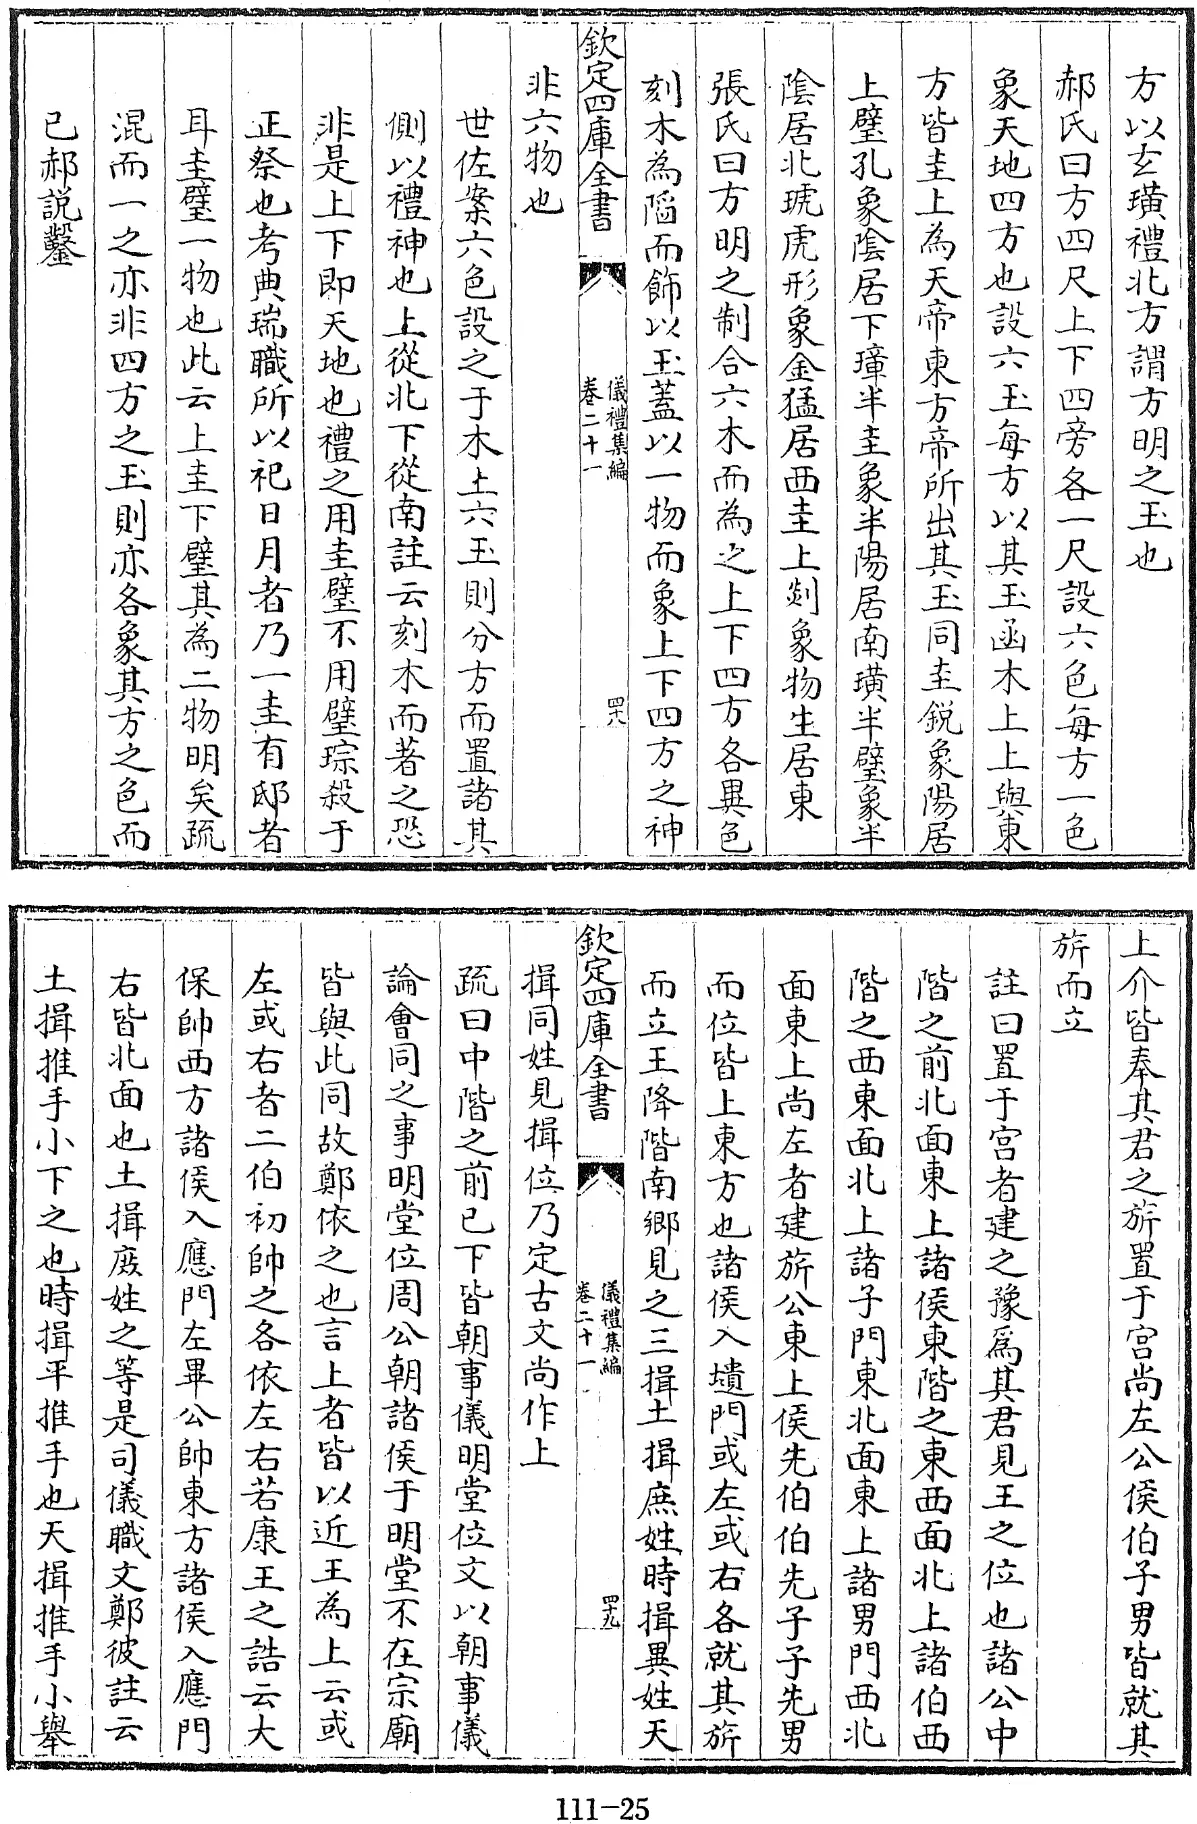 方以玄璜禮北方謂方明之玉也
郝氏曰方四尺上下四旁各一尺設六色每方一色
象天地四方也設六玉每方以其玉函木上上與東
方皆圭上為天帝東方帝所出其玉同圭銳象陽居
上璧孔象陰居下璋半圭象半陽居南璜半璧象半
陰居北琥虎形象金猛居西圭上剡象物生居東
張氏曰方明之制合六木而為之上下四方各異色
刻木為䧟而飾以玉蓋以一物而象上下四方之神
欽定四庫全書
儀禮集編
卷二十一
四十八
非六物也
世佐案六色設之于木上六玉則分方而置諸其
側以禮神也上從北下從南註云刻木而著之恐
非是上下即天地也禮之用圭璧不用璧琮殺于
正祭也考典瑞職所以祀日月者乃一圭有邸者
耳圭璧一物也此云上圭下璧其為二物明矣疏
混而一之亦非四方之玉則亦各象其方之色而
已郝說鑿
上介皆奉其君之旂置于宫尚左公侯伯子男皆就其
旂而立
註曰置于宫者建之豫爲其君見王之位也諸公中
階之前北面東上諸侯東階之東西面北上諸伯西
階之西東面北上諸子門東北面東上諸男門西北
面東上尚左者建旂公東上侯先伯伯先子子先男
而位皆上東方也諸侯入壝門或左或右各就其旂
而立王降階南鄉見之三揖土揖庶姓時揖異姓天
欽定四庫全書
儀禮集編
卷二十一
四十九
揖同姓見揖位乃定古文尚作上
疏曰中階之前已下皆朝事儀明堂位文以朝事儀
論會同之事明堂位周公朝諸侯于明堂不在宗廟
皆與此同故鄭依之也言上者皆以近王為上云或
左或右者二伯初帥之各依左右若康王之誥云大
保帥西方諸侯入應門左畢公帥東方諸侯入應門
右皆北面也土揖庶姓之等是司儀職文鄭彼註云
土揖推手小下之也時揖平推手也天揖推手小舉
111-25